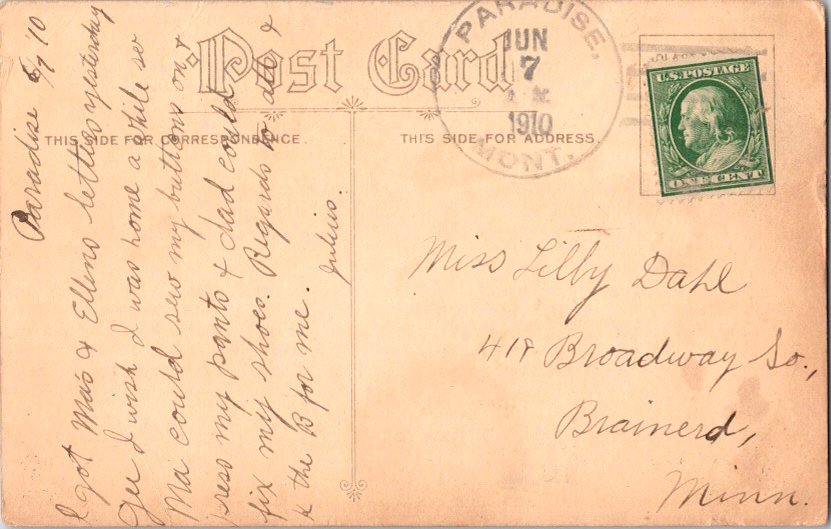 Post Card
THIS SIDE FOR CORRESPONDENCE.
THIS SIDE FOR ADDRESS.
PARADISE,
JUN
7
1910
MONT.
U.S. POSTAGE
ONE CENT
Paradise 6/7 10
I got Ma's & Ellens letters yesterday
Gee I wish I was home a while so
Ma could sew my buttons on &
press my pants & dad could
fix my shoes. Regards to all &
& the B for me.
Julius.
Miss Lilly Dahl
418 Broadway So.,
Brainerd,
Minn.